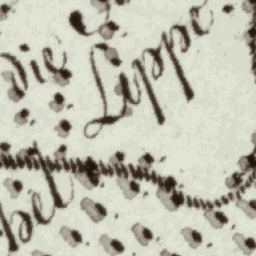 Die Lippe
bel